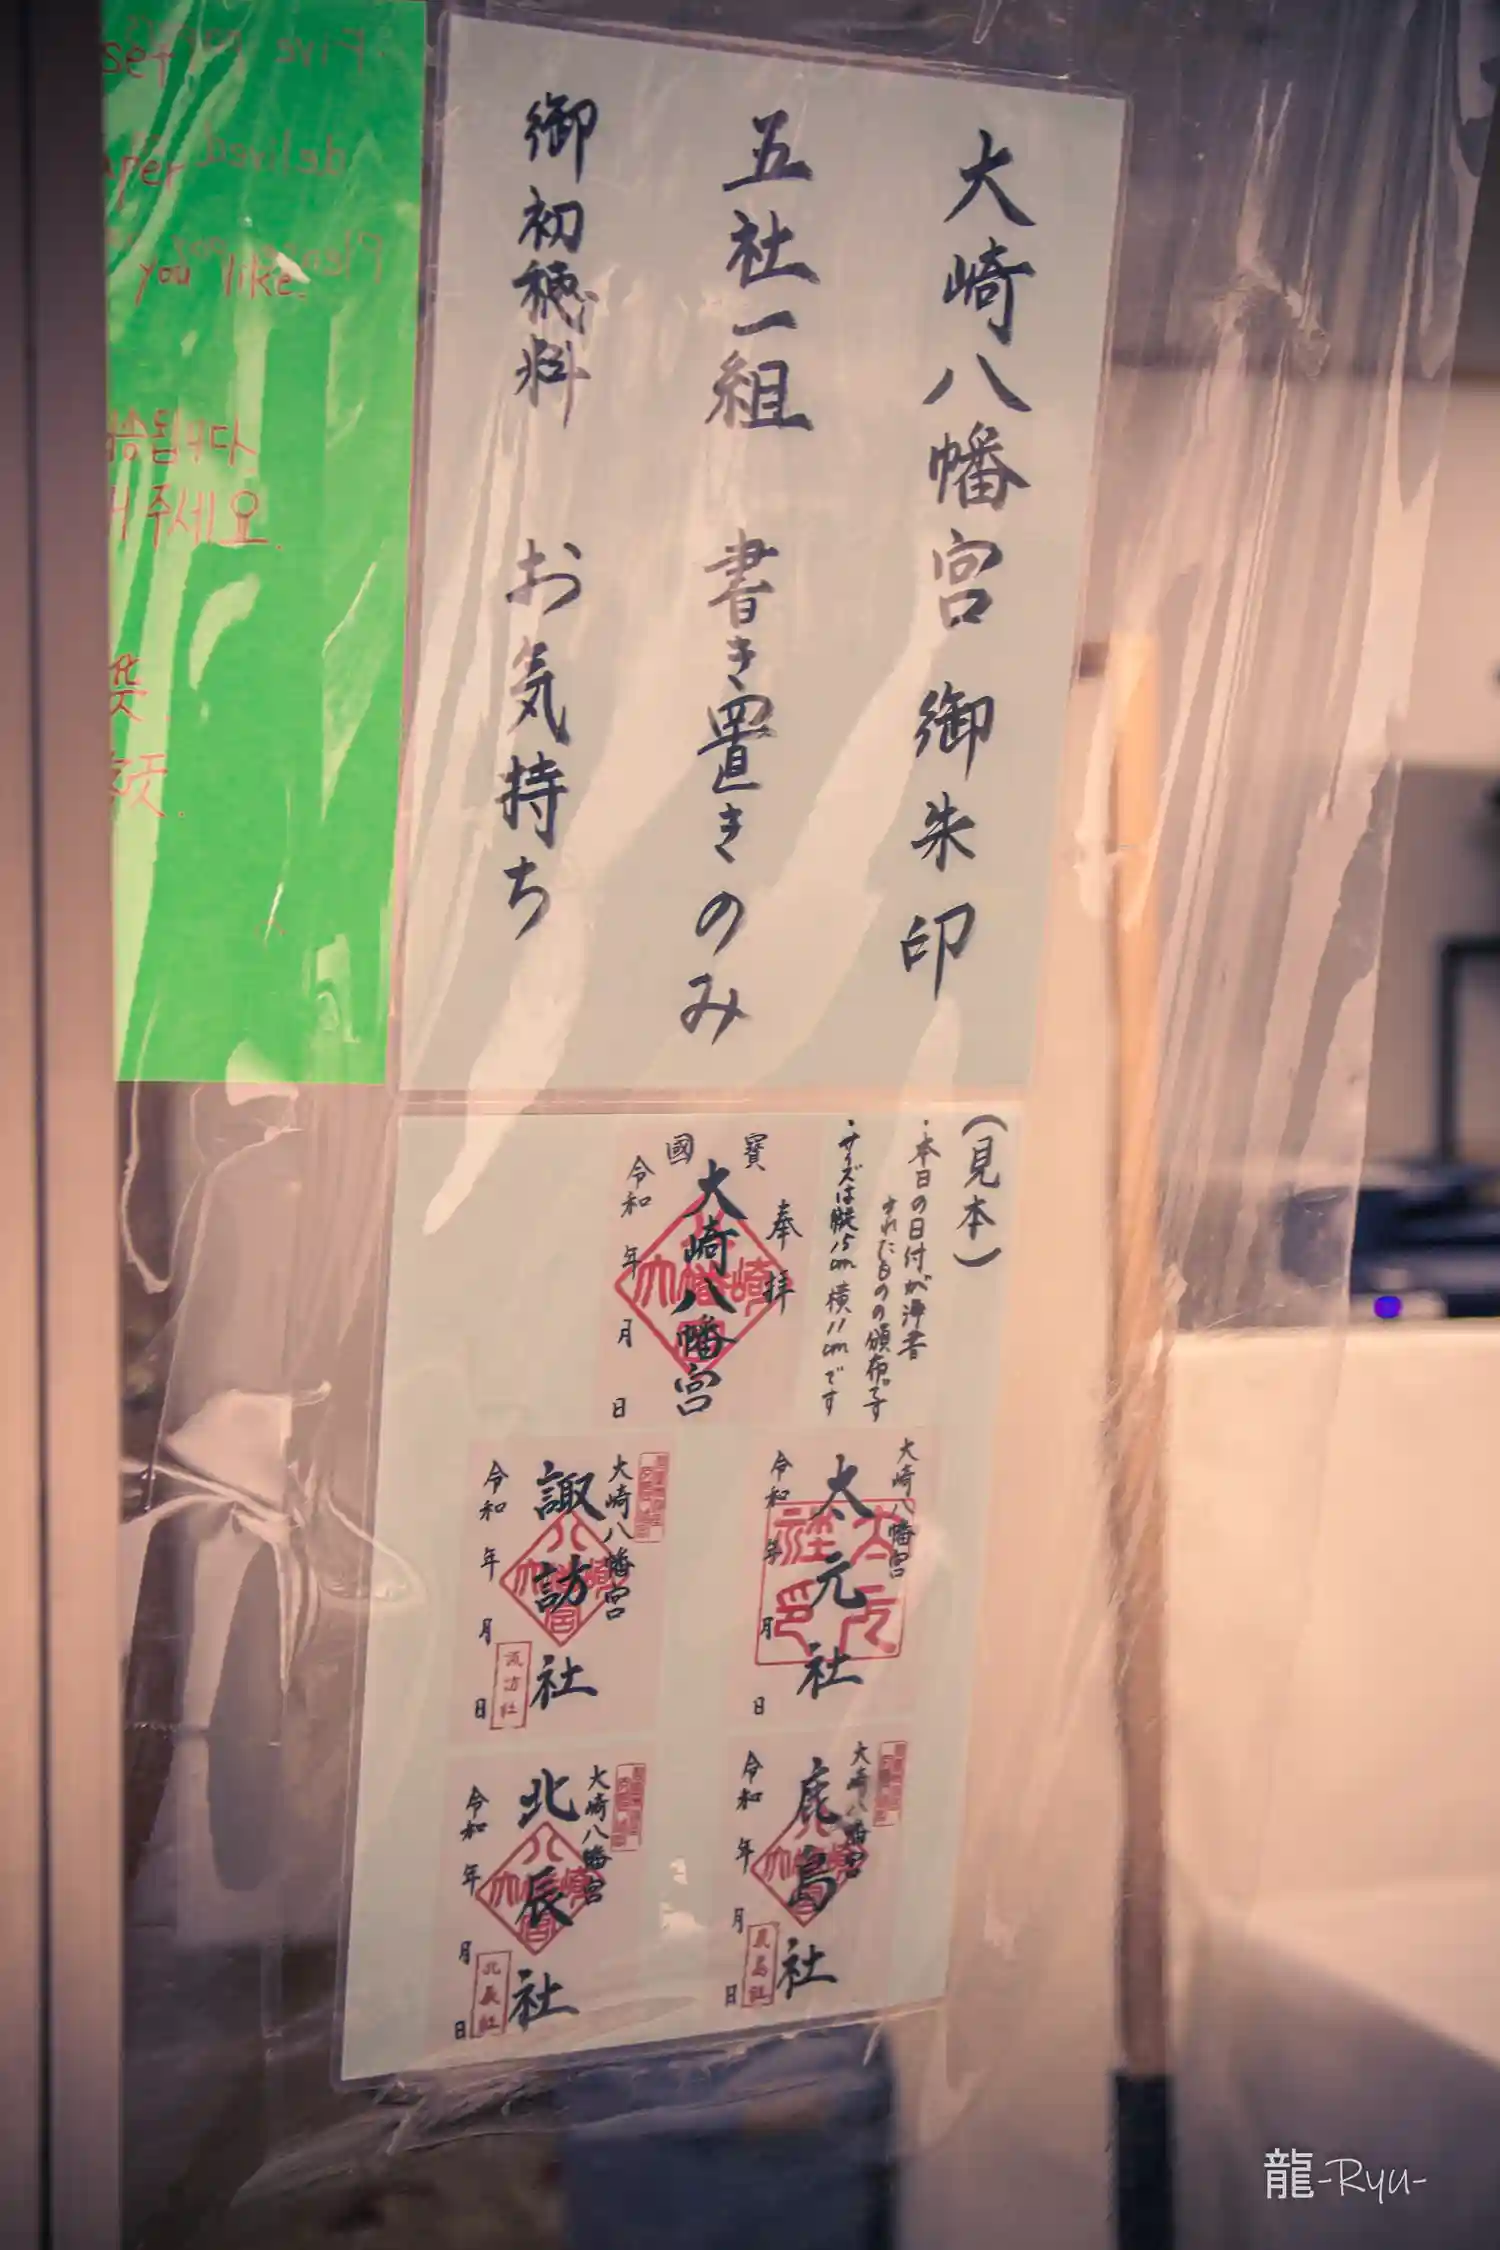 大崎八幡宮 御朱印
五社一組 書き置きのみ
御初穂料 お気持ち
(見本)
・本日の日付が浄書
されたものの頒布です
・サイズは縦15cm 横11cmです
國寶
奉拝
大崎八幡宮
令和 年 月 日
大崎八幡宮
太元社
令和 年 月 日
大崎八幡宮
諏訪社
令和 年 月 日
諏訪社
大崎八幡宮
鹿島社
令和 年 月 日
鹿島社
大崎八幡宮
北辰社
令和 年 月 日
北辰社
Five
set
delived
Please
you like.
됩니다
주세요.
龍-Ryu-